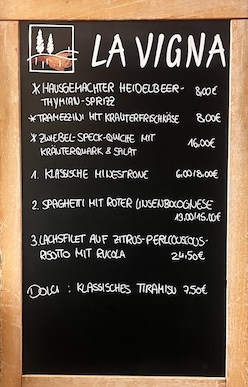 LA VIGNA
* HAUSGEMACHTER HEIDELBEER-
THYMIAN-SPRIZZ 8,00€
* TRAMEZZINI MIT KRÄUTERFRISCHKÄSE 8.00€
* ZWIEBEL-SPECK-QUICHE MIT
KRÄUTERQUARK & SALAT 16.00€
1. KLASSISCHE MINESTRONE 6.00/8.00€
2. SPAGHETTI MIT ROTER LINSENBOLOGNESE
13.00/15.00€
3. LACHSFILET AUF ZITRUS-PERLCOUSCOUS-
RISOTTO MIT RUCOLA 24,50€
DOLCI : KLASSISCHES TIRAMISU 7.50€